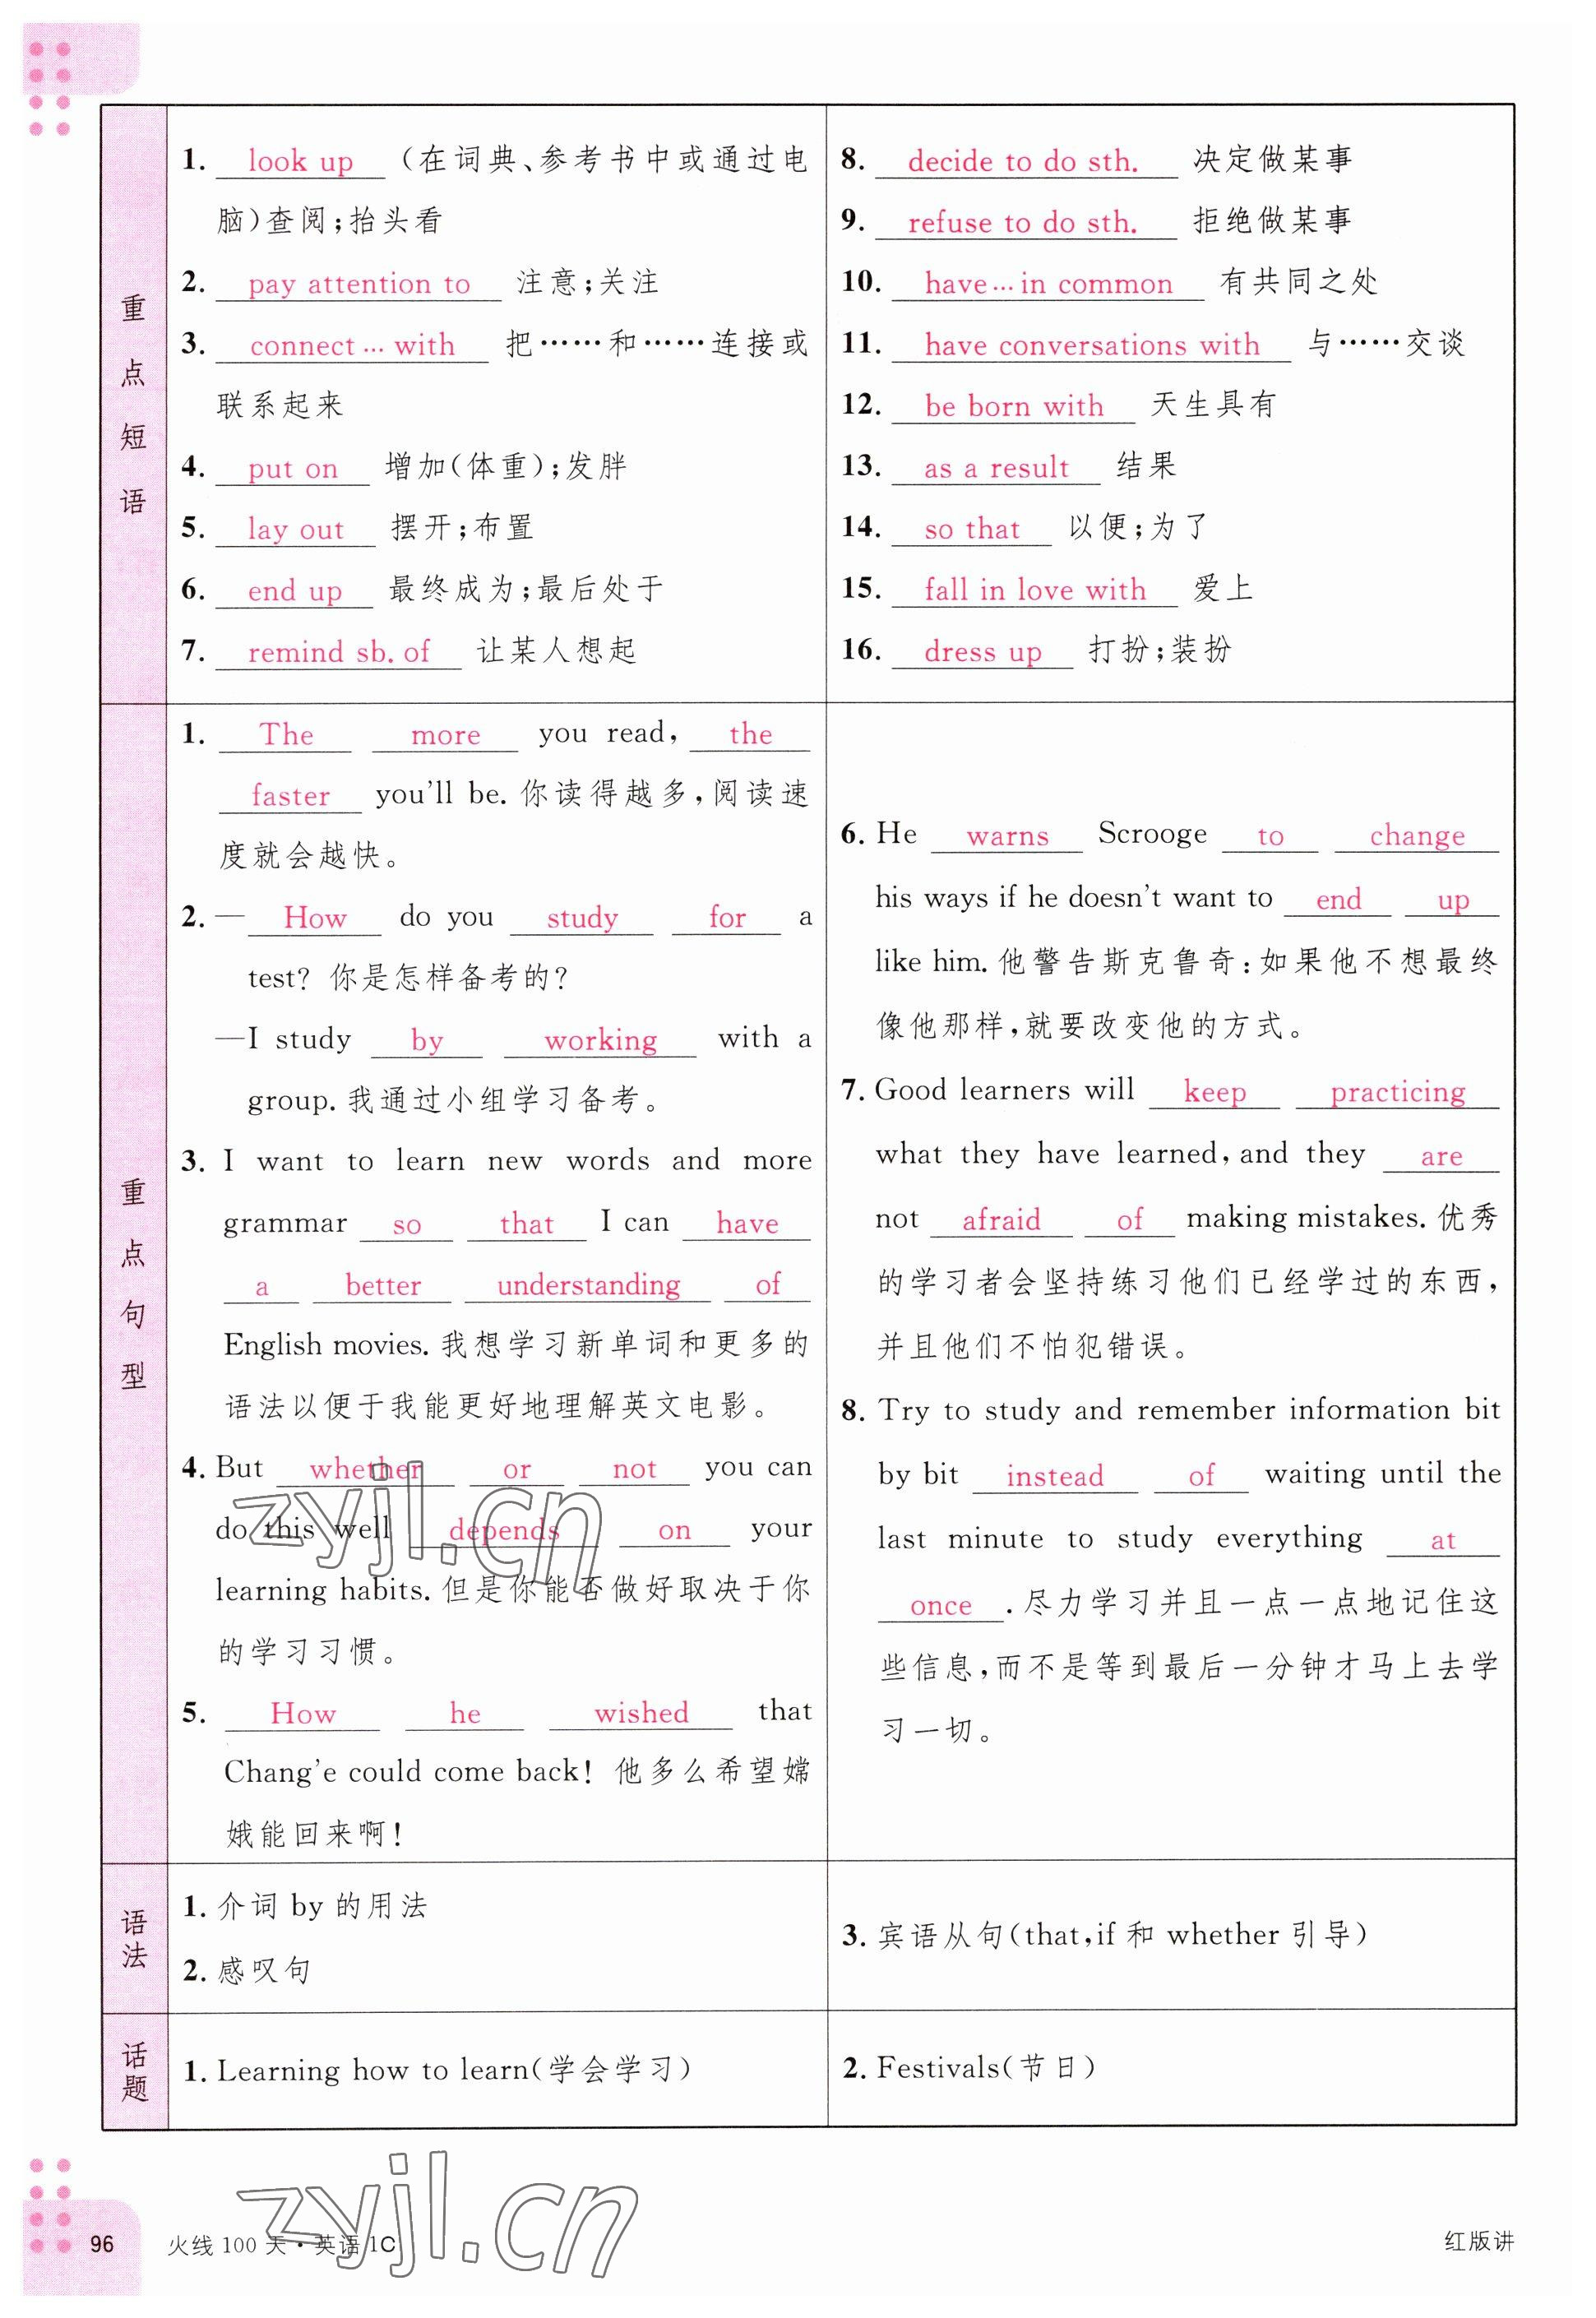 重点短语
1. look up (在词典、参考书中或通过电
脑)查阅;抬头看
2. pay attention to 注意;关注
3. connect … with 把……和……连接或
联系起来
4. put on 增加(体重);发胖
5. lay out 摆开;布置
6. end up 最终成为;最后处于
7. remind sb. of 让某人想起
8. decide to do sth. 决定做某事
9. refuse to do sth. 拒绝做某事
10. have … in common 有共同之处
11. have conversations with 与……交谈
12. be born with 天生具有
13. as a result 结果
14. so that 以便;为了
15. fall in love with 爱上
16. dress up 打扮;装扮
重点句型
1. The more you read, the
faster you'll be. 你读得越多,阅读速
度就会越快。
2. — How do you study for a
test? 你是怎样备考的?
—I study by working with a
group. 我通过小组学习备考。
3. I want to learn new words and more
grammar so that I can have
a better understanding of
English movies. 我想学习新单词和更多的
语法以便于我能更好地理解英文电影。
4. But whether or not you can
do this well depends on your
learning habits. 但是你能否做好取决于你
的学习习惯。
5. How he wished that
Chang'e could come back! 他多么希望嫦
娥能回来啊!
6. He warns Scrooge to change
his ways if he doesn't want to end up
like him. 他警告斯克鲁奇:如果他不想最终
像他那样,就要改变他的方式。
7. Good learners will keep practicing
what they have learned, and they are
not afraid of making mistakes. 优秀
的学习者会坚持练习他们已经学过的东西,
并且他们不怕犯错误。
8. Try to study and remember information bit
by bit instead of waiting until the
last minute to study everything at
once. 尽力学习并且一点一点地记住这
些信息,而不是等到最后一分钟才马上去学
习一切。
语法
1. 介词 by 的用法
2. 感叹句
3. 宾语从句(that,if 和 whether 引导)
话题
1. Learning how to learn(学会学习)
2. Festivals(节日)
zyjl.cn
zyjl.cn
96 火线 100 天·英语 1C
红版讲